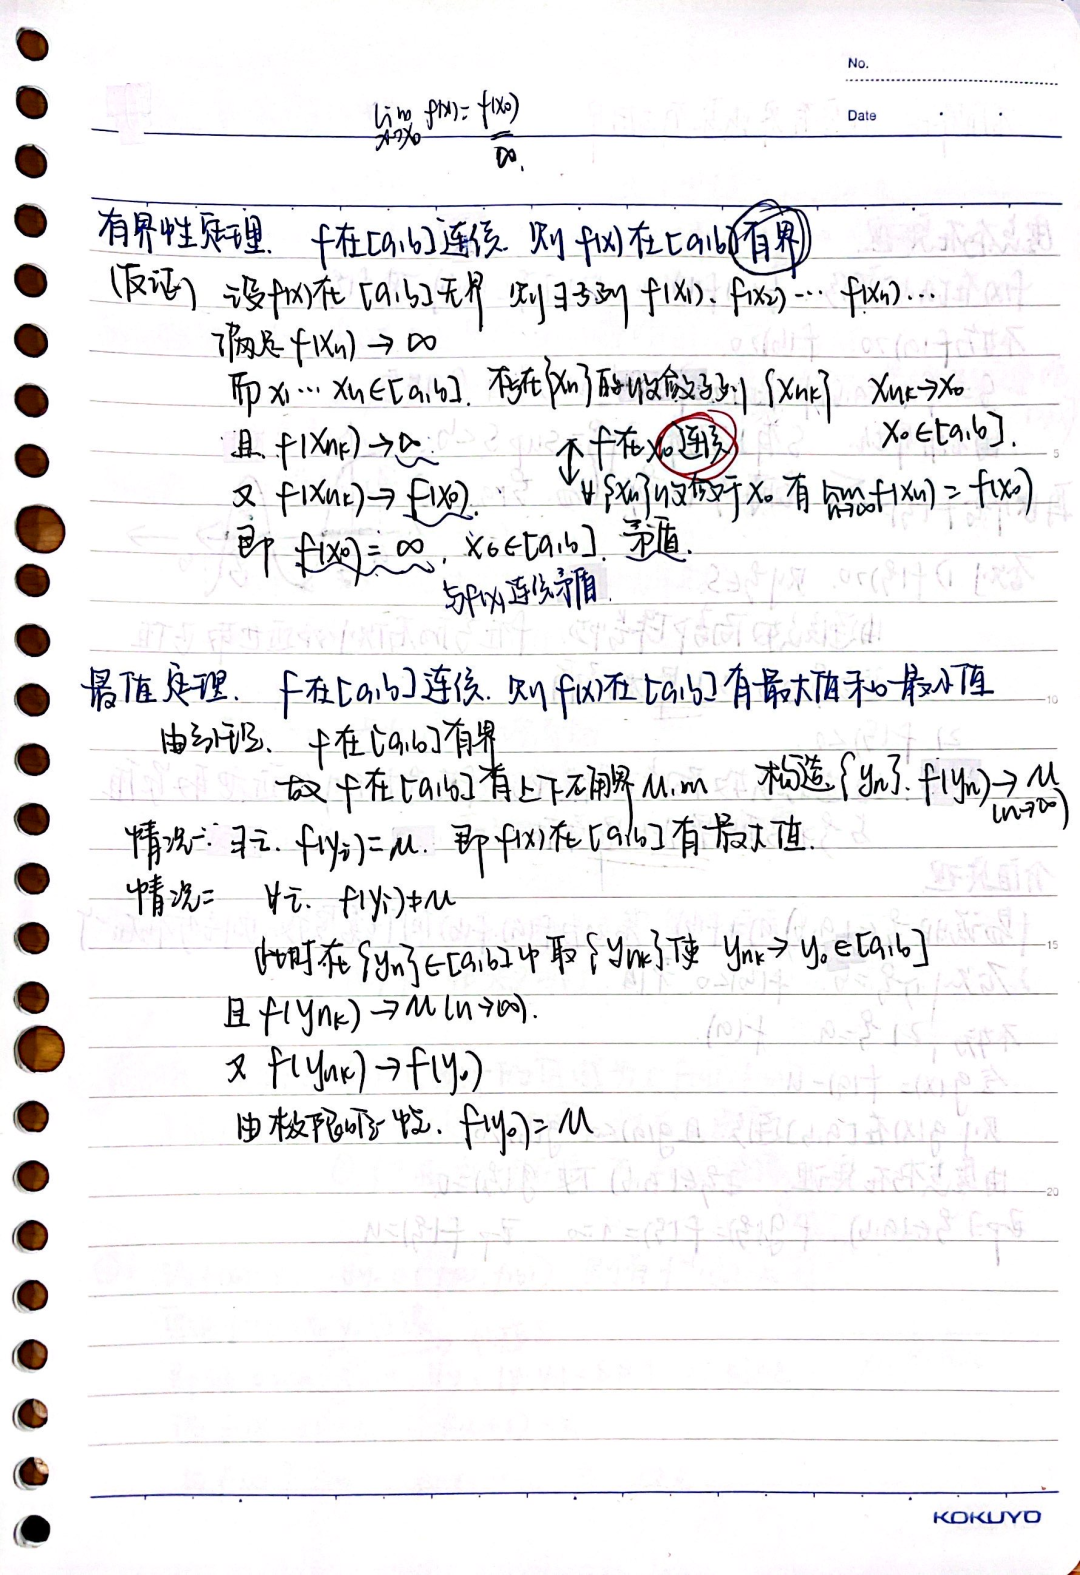 No.
Date
lim f(x) = f(x₀)
x→x₀
∞.
有界性定理. f在[a,b]连续 则 f(x)在[a,b]有界
(反证) 设f(x)在[a,b]无界 则∃子列 f(x₁)、f(x₂)… f(xₙ)…
满足 f(xₙ)→∞
而 x₁…xₙ∈[a,b]. 存在{xₙ}的收敛子列{xₙₖ} xₙₖ→x₀
x₀∈[a,b].
且 f(xₙₖ)→∞ ↕ f在x₀连续
又 f(xₙₖ)→f(x₀). ∀{xₙ}收敛于x₀ 有 lim f(xₙ)=f(x₀)
n→∞
即 f(x₀)=∞, x₀∈[a,b]. 矛盾.
与f(x)连续矛盾.
最值定理. f在[a,b]连续. 则f(x)在[a,b]有最大值和最小值
由引理. f在[a,b]有界
故 f在[a,b]有上下确界 M.m 构造{yₙ}. f(yₙ)→M
(n→∞)
情况一: ∃i. f(yᵢ)=M. 即f(x)在[a,b]有最大值.
情况二 ∀i. f(yᵢ)≠M
此时在{yₙ}∈[a,b]中取{yₙₖ}使 yₙₖ→y₀∈[a,b]
且 f(yₙₖ)→M(n→∞).
又 f(yₙₖ)→f(y₀)
由极限唯一性. f(y₀)=M
5
10
15
20
KOKUYO